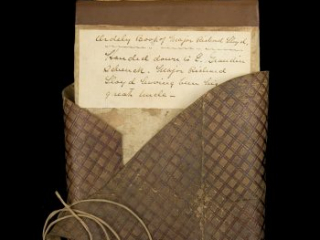 Orderly Book of Major Richard Lloyd,
Handed down to E. Brandin
Schenck. Major Richard
Lloyd having been his
great uncle –